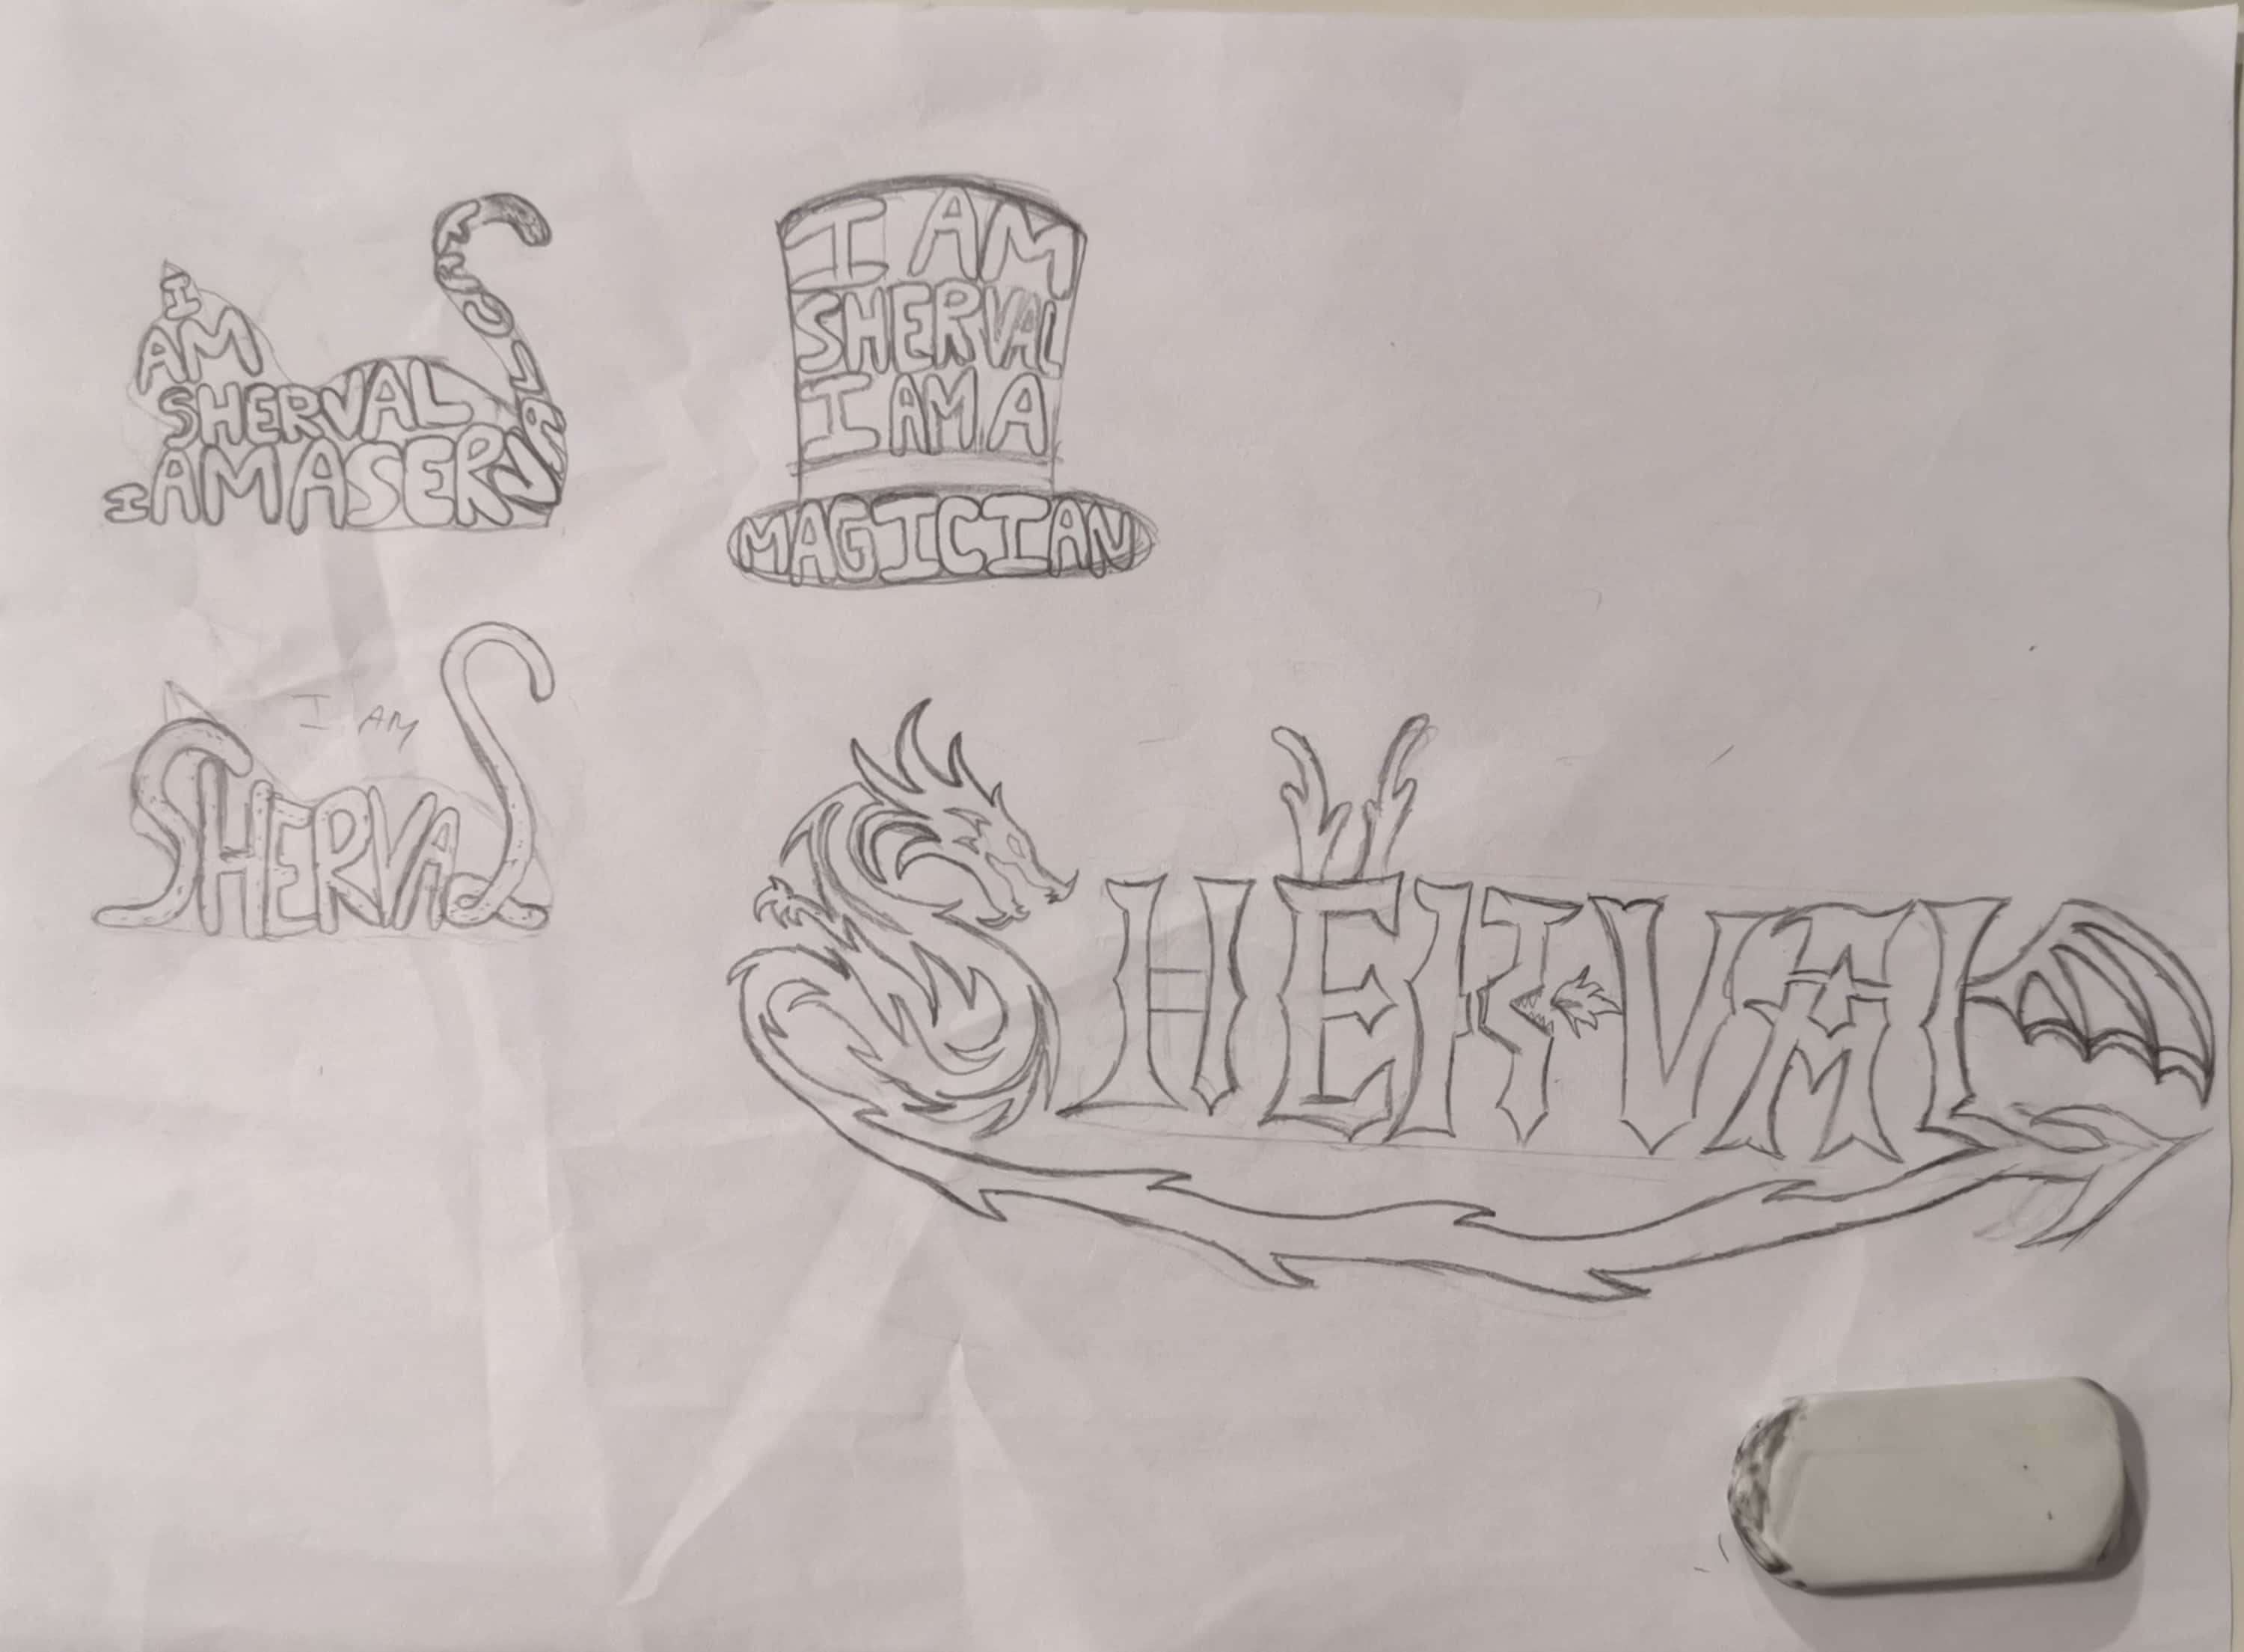 I
AM
SHERVAL
I AM A
I AM
SHERVAL
I AM A
MAGICIAN
I AM
SHERVAL
SHERVAL